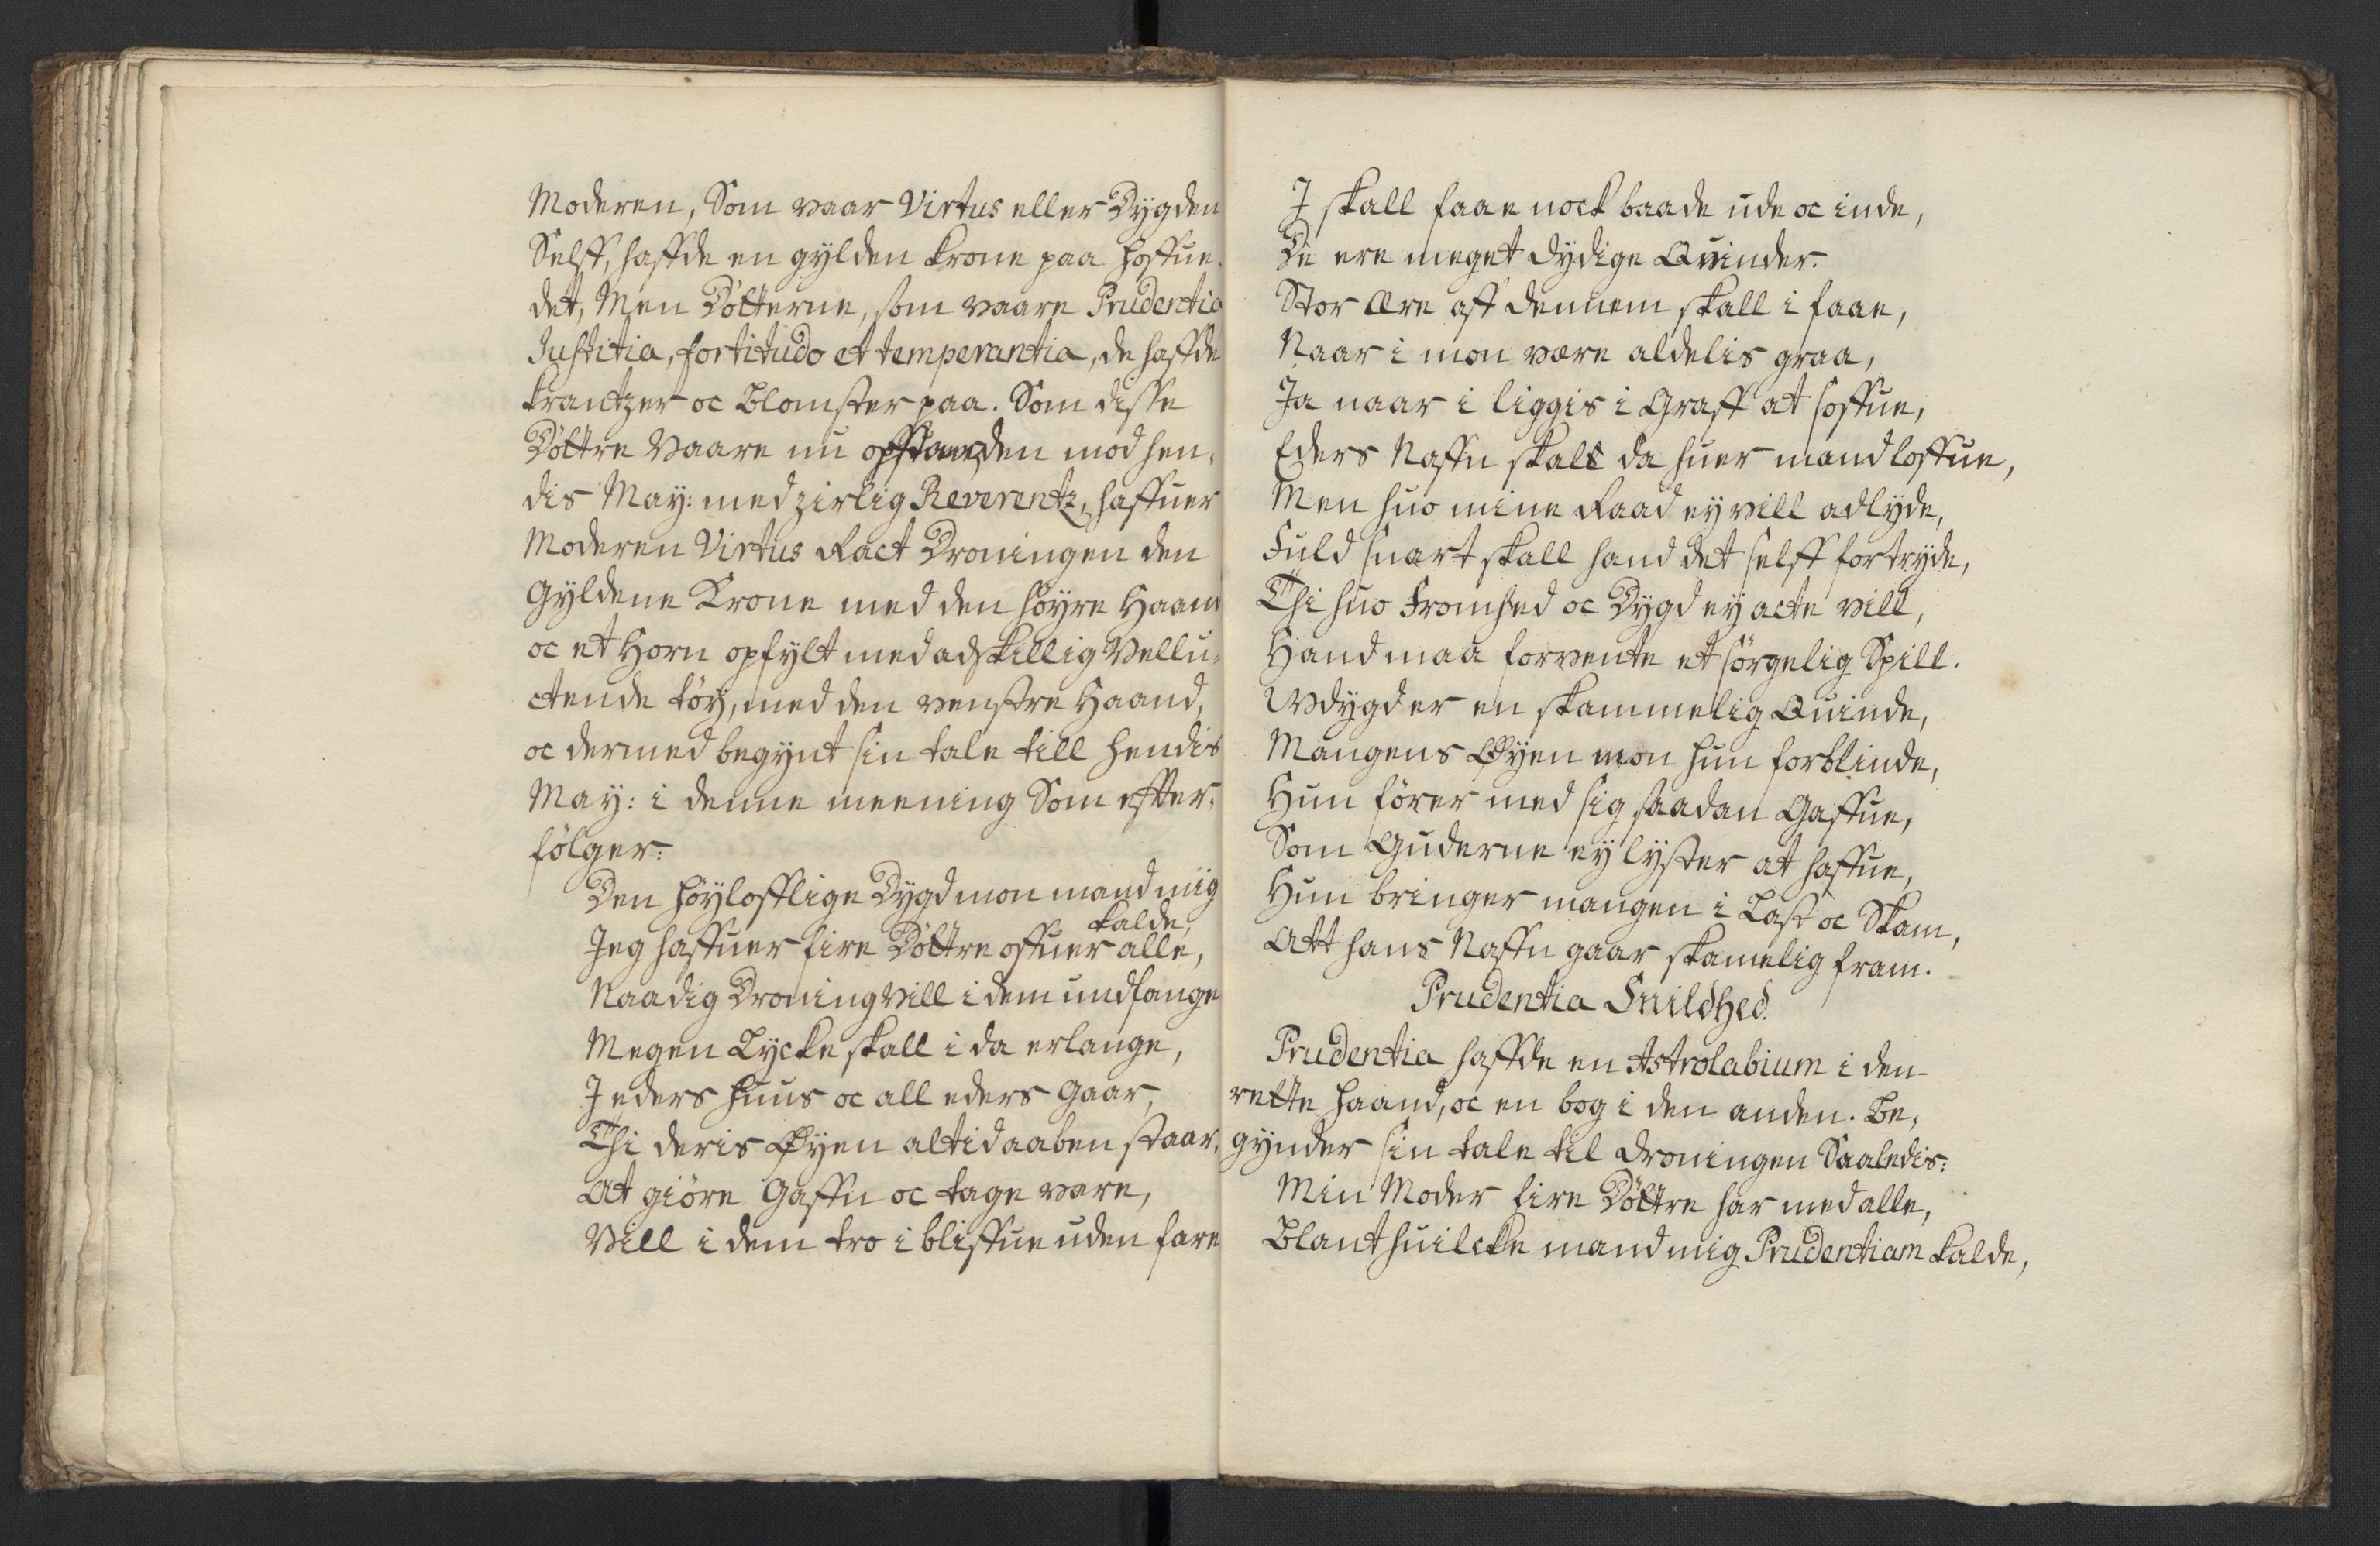 Moderen, Som vaar Virtus eller Dygden
Selff, haffde en gylden krone paa hoffue,
det, Men Dötterne, som vaare Prudentia
Justitia, fortitudo et temperantia, de haffde
krantzer oc blomster paa. Som disse
Döttre vaare nu opstanden mod hen,
dis May: med zirlig Reverentz, haffuer
Moderen Virtus Ract Droningen den
Gyldene Krone med den höyre Haand
oc et Horn opfylt med adskillig Vellu,
ctende töy, med den venstre Haand,
oc dermed begynt sin tale till hendis
May: i denne meening Som effter,
fölger:
Den höylofflige Dygd mon mand miig
kalde,
Jeg haffuer fire Döttre offuer alle,
Naadig Droning vill i dem undfange
Megen Lycke skall i da erlange,
J eders huus oc all eders Gaar,
Thi deris Øyen altid aaben staar,
At giöre Gaffn oc tage vare,
Vill i dem tro i bliffue uden fare
J skall faae nock baade ude oc inde,
De ere meget dydige Quinder.
Stor Ære aff dennem skall i faae,
Naar i mon være aldelis graa,
Ja naar i liggis i Graff at soffue,
Eders Naffn skall da huer mand loffue,
Men huo mine Raad ey vill adlyde,
Fuld snart skall hand det selff fortryde,
Thi huo Fromhed oc Dygd ey acte vill,
Hand maa forvente et sörgelig Spill.
Vdygd er en skammelig Quinde,
Mangens Øyen mon hun forblinde,
Hun förer med sig saadan Gaffue,
Som Guderne ey lyster at haffue,
Hun bringer mangen i Last oc Skam,
Att hans Naffn gaar skamelig fram.
Prudentia Snildhed.
Prudentia haffde en Astrolabium i den
rette haand, oc en bog i den anden. Be,
gynder sin tale til Droningen Saaledis:
Min Moder fire Döttre har med alle,
Blant huilcke mand mig Prudentiam kalde,